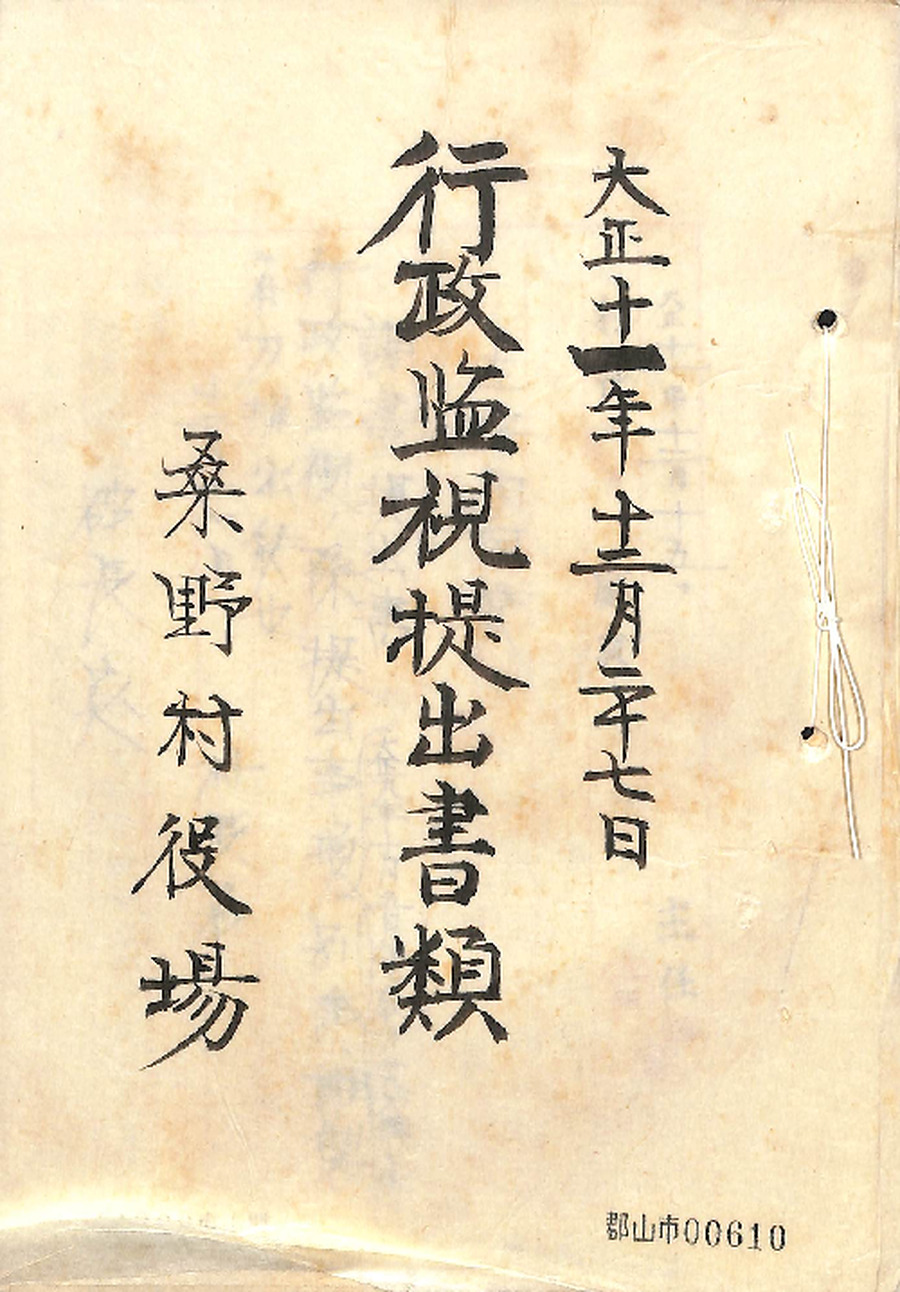 大正十一年十二月二十七日
行政监視提出書類
桑野村役場
郡山市00610